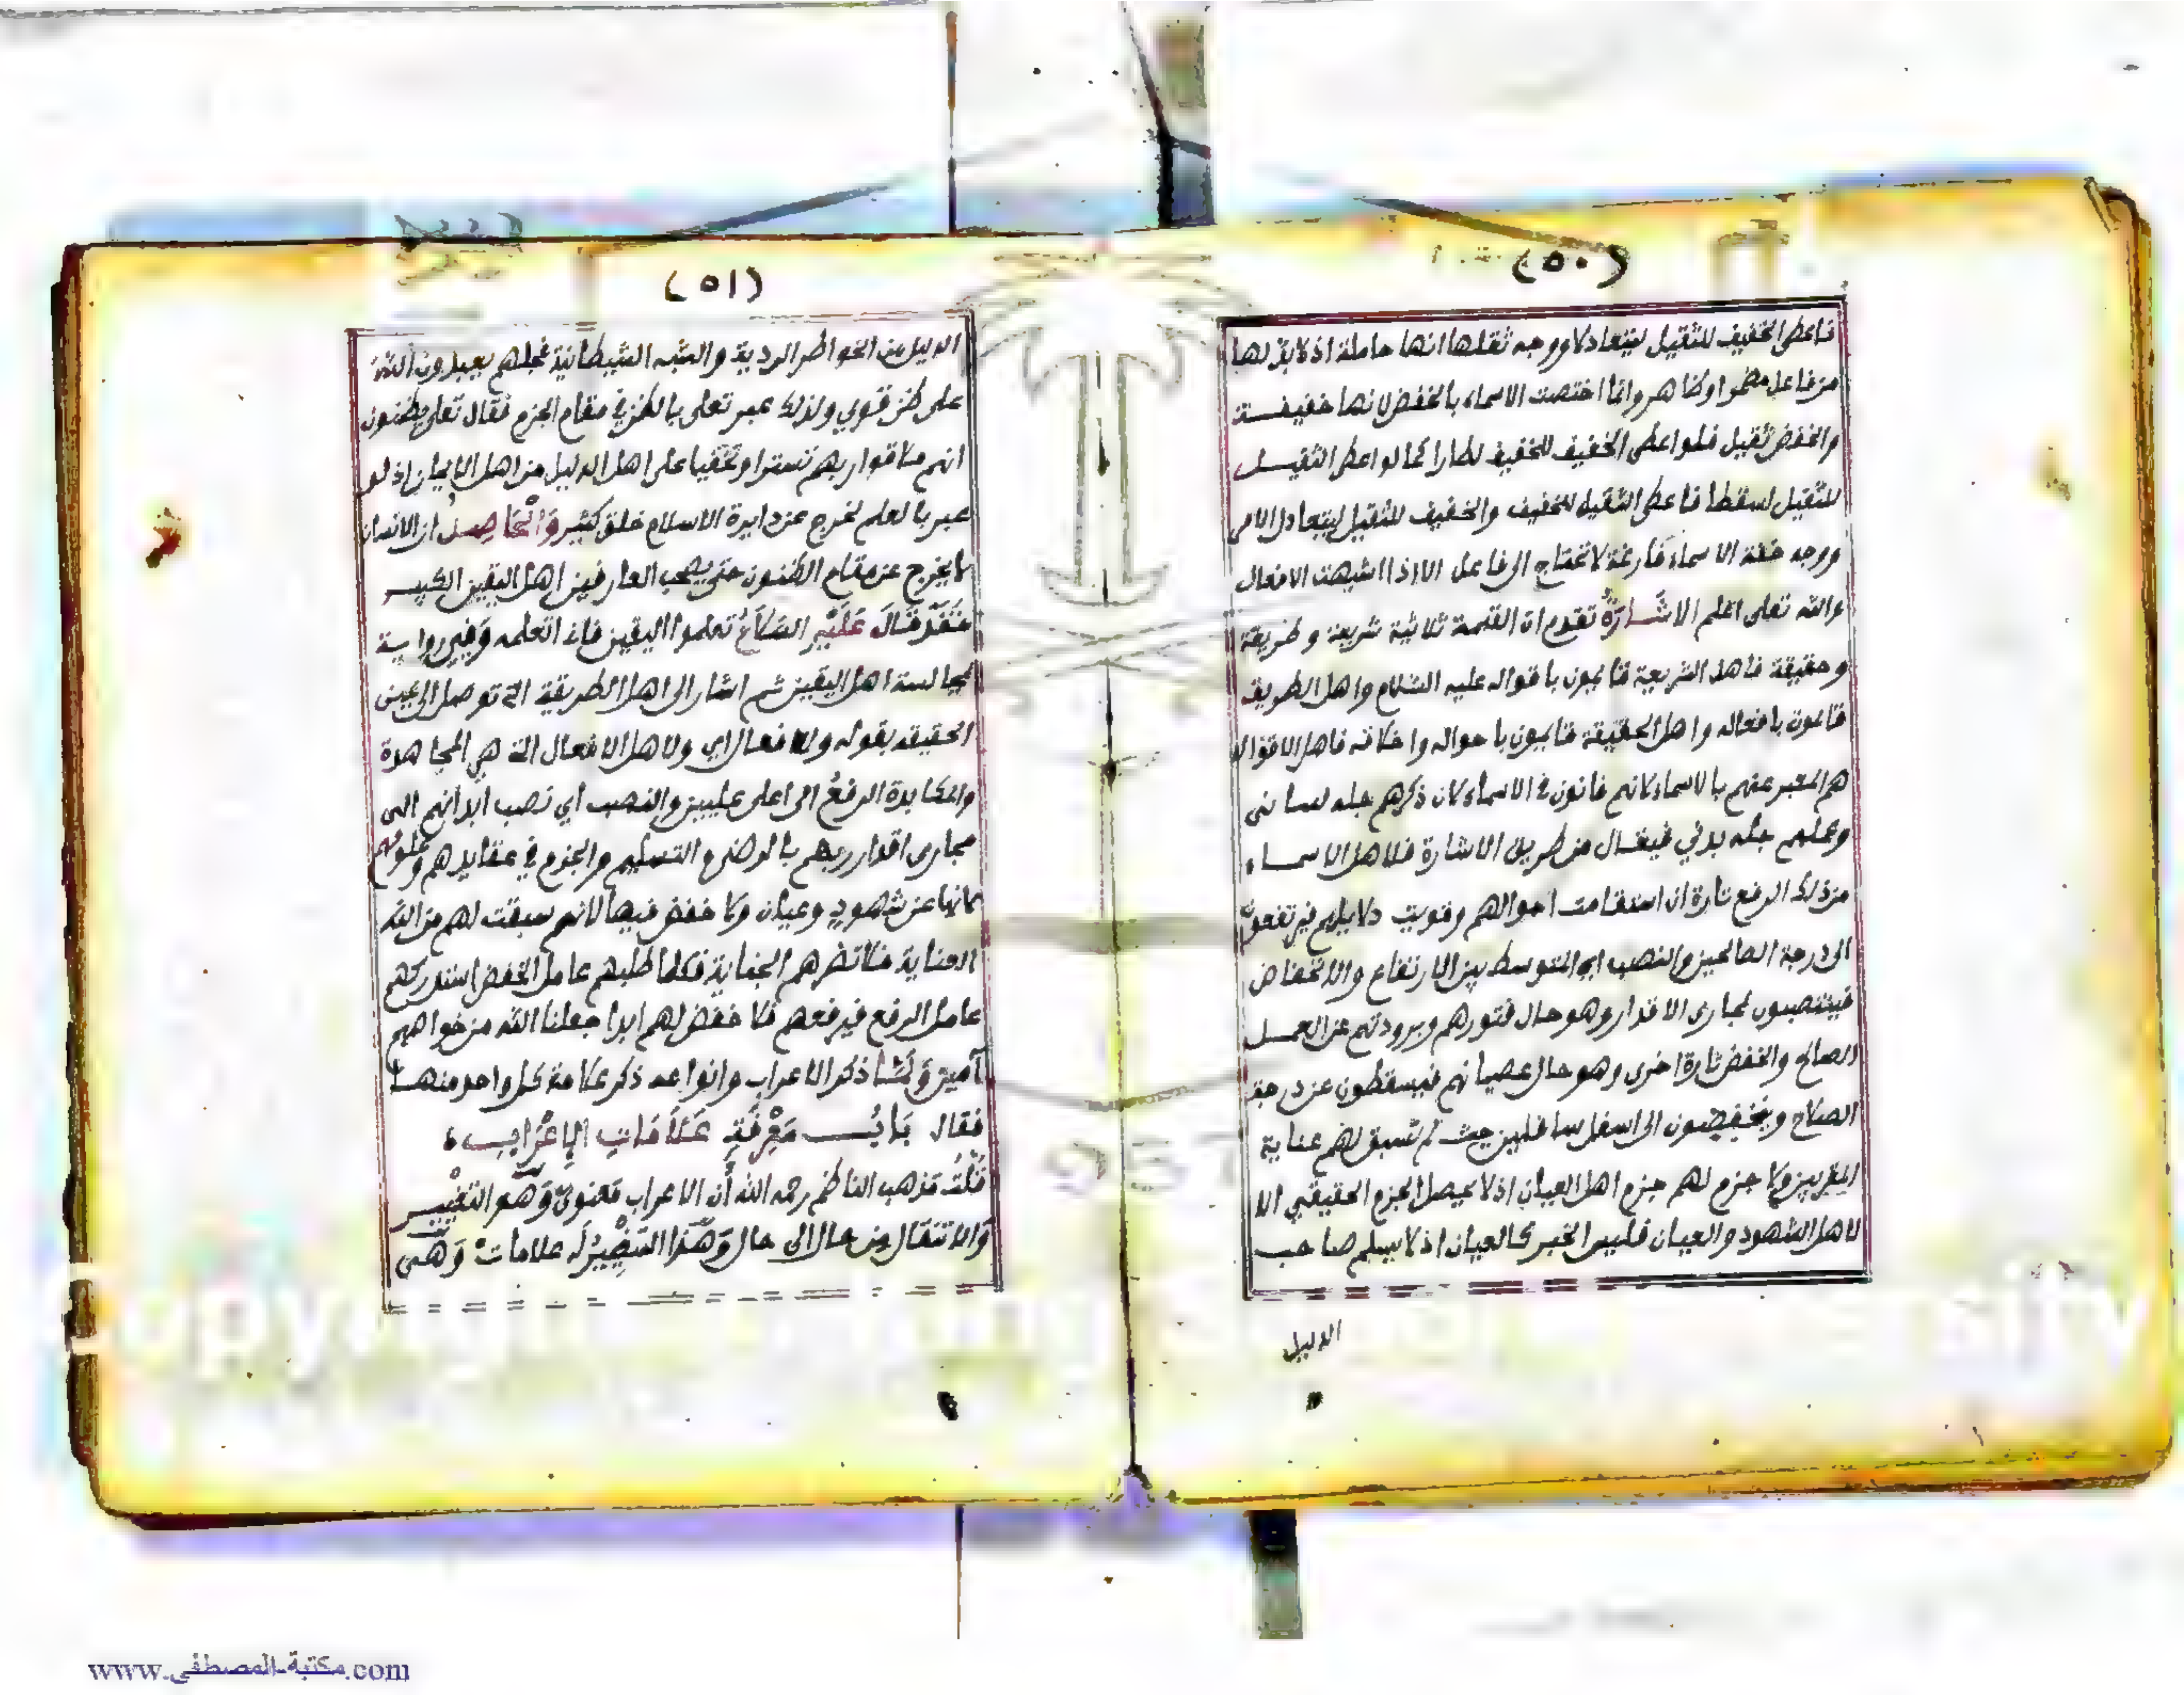 (٥٠)
فاعطى الخفيف للثقيل ليتعادلا ووجه ثقلها انها حاملة اذ لا بد لها
من فاعل مضمرا وظاهر وانما اختصت الاسماء بالخفض لانها خفيفة
والخفض ثقيل فلو اعطى الخفيف للخفيف لطارا كما لو اعطى الثقيل
للثقيل لسقطا فاعطى الثقيل للخفيف والخفيف للثقيل ليتعادل الامر
ووجه خفة الاسماء فارغة لا تحتاج الى فاعل الا اذا اشبهت الافعال
والله تعلى اعلم الاشارة تقدم ان القسمة ثلاثية شريعة وطريقة
وحقيقة فاهل الشريعة قايمون باقواله عليه السلام واهل الطريقة
قايمون بافعاله واهل الحقيقة قايمون باحواله واخلاقه فاهل الاقوال
هم المعبر عنهم بالاسماء لانهم فانون في الاسماء لان ذكرهم جله لساني
وعملهم جله بدني فيقال من طريق الاشارة فلاهل الاسماء
من ذلك الرفع تارة ان استقامت احوالهم وقويت دلايلهم فيرتفعون
الى درجة الصالحين والنصب اي التوسط بين الارتفاع والانخفاض
فينتصبون لمجارى الاقدار وهو حال فتورهم وبرودتهم عن العمل
الصالح والخفض تارة اخرى وهو حال عصيانهم فيسقطون عن درجة
الصلاح وينخفضون الى اسفل سافلين حيث لم تسبق لهم عناية
المقربين ولا جزم لهم جزم اهل العيان اذ لا يحصل الجزم الحقيقي الا
لاهل الشهود والعيان فليس الخبر كالعيان اذ لا يسلم صاحب
الدليل
(٥١)
الدليل من الخواطر الردية والشبه الشيطانية فجلهم يعبدون الله
على ظن قوي ولذلك عبر تعلى بالظن في مقام الجزم فقال تعلى يظنون
انهم ملاقوا ربهم تسترا وتخفيا على اهل الدليل من اهل الايمان اذ لو
عبر بالعلم لخرج عن دايرة الاسلام خلق كثير وَالْحَاصِل ان الانسان
لا يخرج عن مقام الظنون حتى يصحب العارفين اهل اليقين الكبير
فَقَدْ قَالَ عَلَيْهِ السَّلَامُ تعلموا اليقين فاني اتعلمه وَفِي رواية
بمجالسة اهل اليقين ثم اشار الى اهل الطريقة التي توصل الى عين
الحقيقة بقوله وللافعال اي ولاهل الافعال التي هي المجاهدة
والمكابدة الرفعُ الى اعلى عليين والنصب اي نصب ابدانهم الى
مجارى اقدار ربهم بالرضى والتسليم والجزم في عقايدهم وعلومهم
لانها عن شهود وعيان ولا خفض فيها لانهم سبقت لهم من الله
العناية فلا تضرهم الجناية فكلما طلبهم عامل الخفض استدركهم
عامل الرفع فيرفعهم فلا خفض لهم ابدا جعلنا الله من خواصهم
آمين وَلَمَّا ذكر الاعراب وانواعه ذكر علامة كل واحد منها
فقال بَابُ مَعْرِفَةِ عَلَامَاتِ الإِعْرَابِ
قُلْتُ مذهب الناظم رحمه الله أن الاعراب مَعنوىٌّ وَهُو التغْيير
والانتقال من حال الى حال وَهَذا التغْيِيرُ له علامات وَهْى
www.مكتبة_المصطفى.com